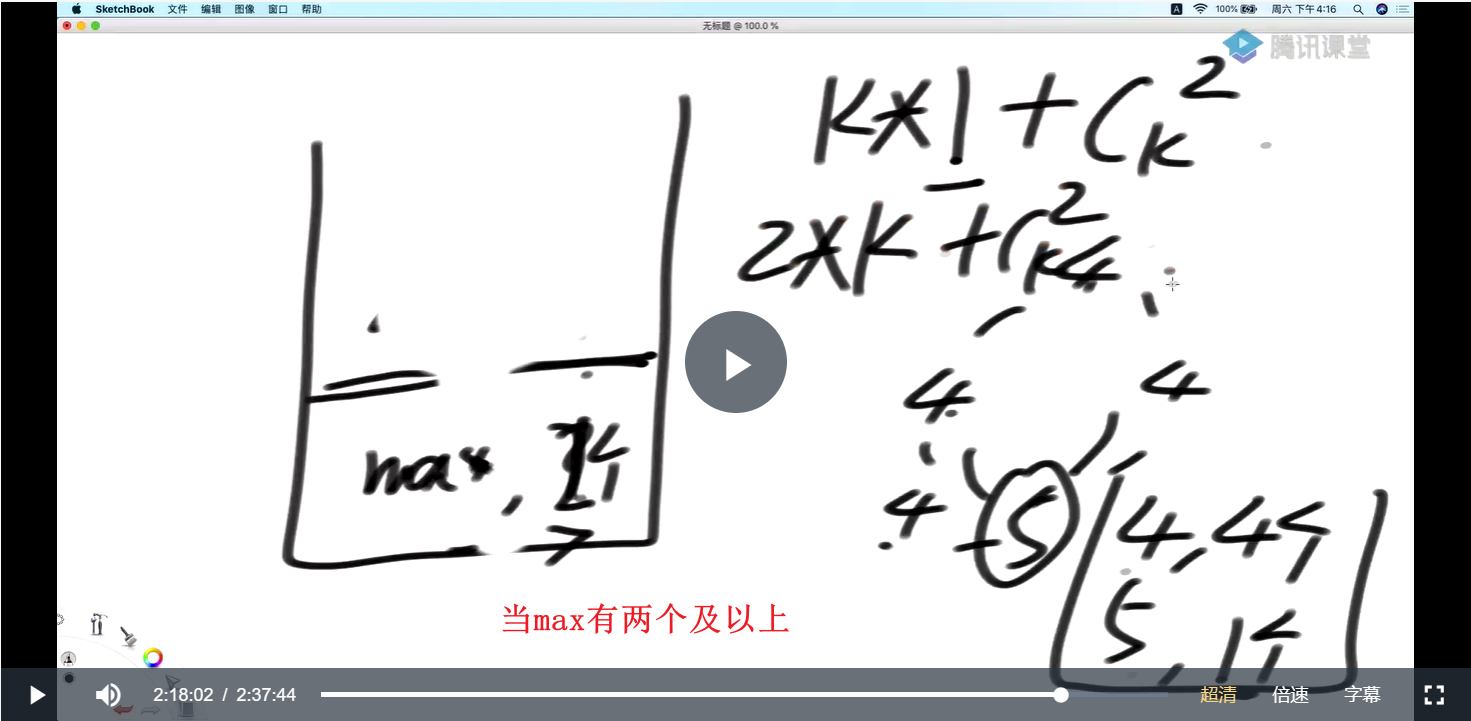 SketchBook 文件 编辑 图像 窗口 帮助 A 100% 周六 下午4:16
无标题 @ 100.0 %
腾讯课堂
K×1 + C_K^2
2×K + C_K^2 4
4 4
max, 个
4 5 4, 4个
7
5, 1个
当max有两个及以上
2:18:02 / 2:37:44 超清 倍速 字幕